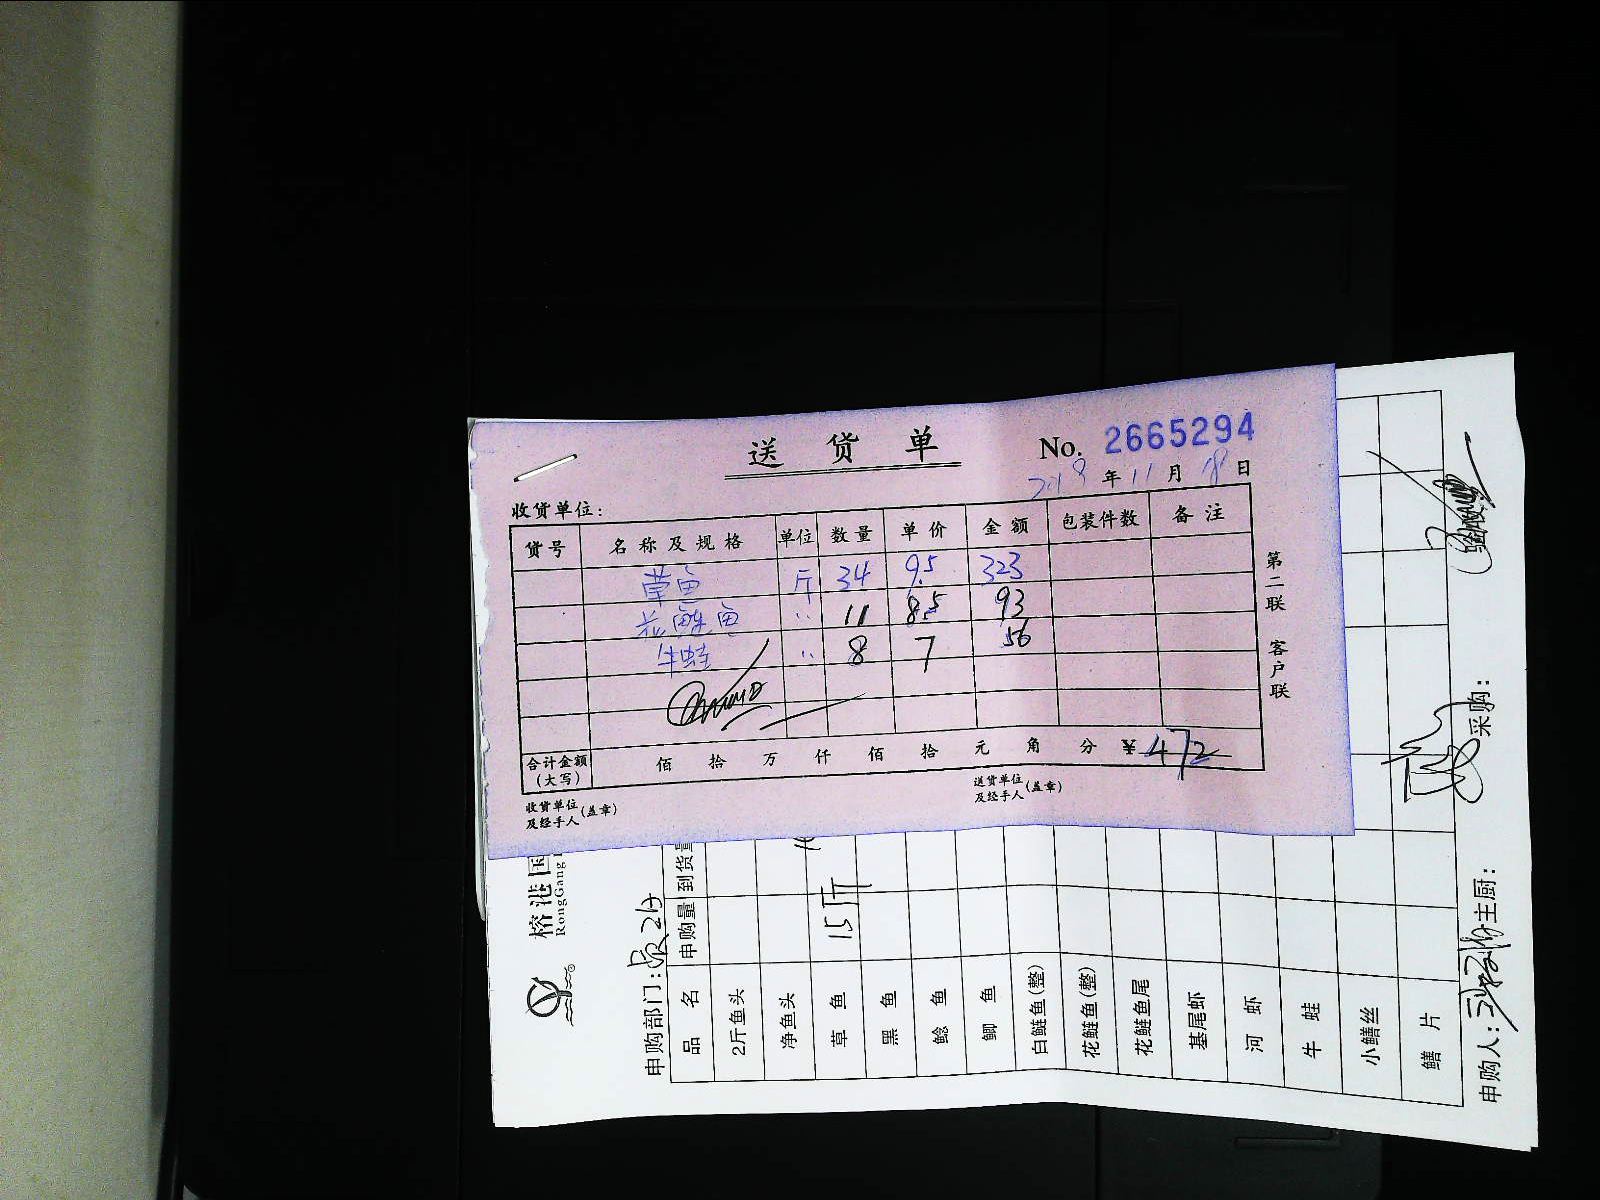 送货单
No. 2665294
2018年11月18日
收货单位:
货号 名称及规格 单位 数量 单价 金额 包装件数 备注
草鱼 斤 34 9.5 323
花鲢鱼 〃 11 8.5 93
牛蛙 〃 8 7 56
合计金额(大写) 佰 拾 万 仟 佰 拾 元 角 分 ¥472
收货单位及经手人(盖章) 送货单位及经手人(盖章)
第二联 客户联
榕港国
RongGang
申购部门:
品名 申购量 到货量
2斤鱼头
净鱼头
草鱼 15斤
黑鱼
鲶鱼
鲫鱼
白鲢鱼(整)
花鲢鱼(整)
花鲢鱼尾
基尾虾
河虾
牛蛙
小鳝丝
鳝片
申购人: 主厨: 采购: